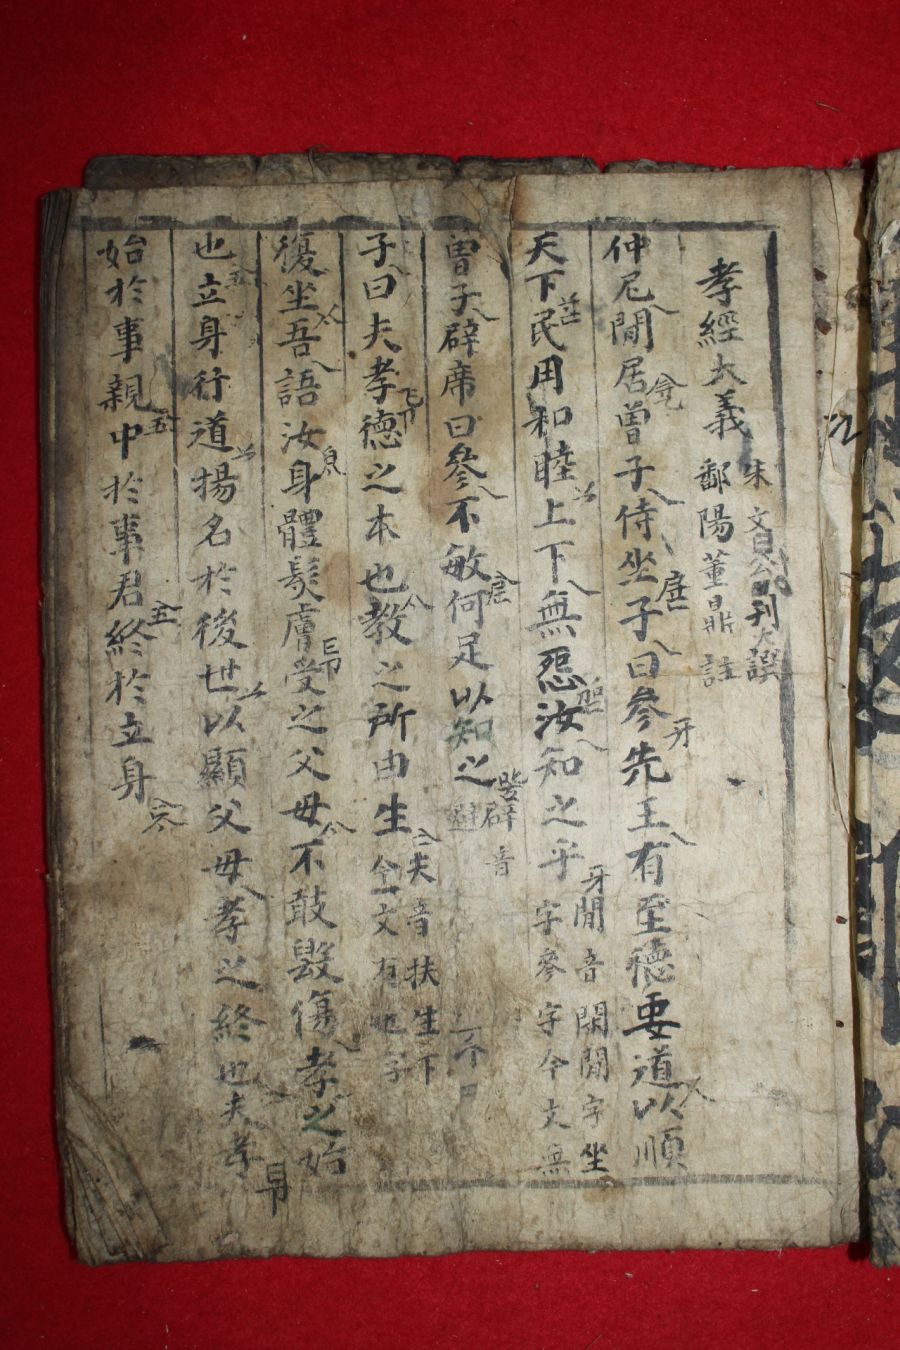 孝經大義 朱文公刊誤 鄱陽董鼎註
仲尼閒居曾子侍坐子曰參先王有至德要道以順
天下民用和睦上下無怨汝知之乎 閒音閑閒字坐字參字今文無
曾子辟席曰參不敏何足以知之 辟音避
子曰夫孝德之本也教之所由生 夫音扶生下今文有也字
復坐吾語汝身體髮膚受之父母不敢毀傷孝之始
也立身行道揚名於後世以顯父母孝之終也夫孝
始於事親中於事君終於立身